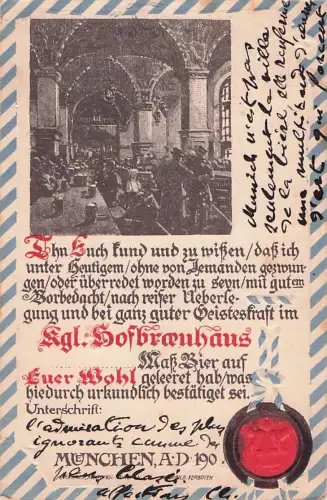 Thu Euch kund und zu wißen/daß ich
unter Heutigem/ohne von Jemanden gezwun-
gen/oder überredet worden zu seyn/mit gutem
Vorbedacht/nach reifer Ueberle-
gung und bei ganz guter Geisteskraft im
Kgl: Hofbræuhaus
Maß Bier auf
Euer Wohl geleeret hab/was
hiedurch urkundlich bestätiget sei.
Unterschrift:
l'admiration des plus
ignorants comme des
MUENCHEN, A·D·190
plus
Munich n'est pas
seulement la ville
de la bière elle renferme
une multitude